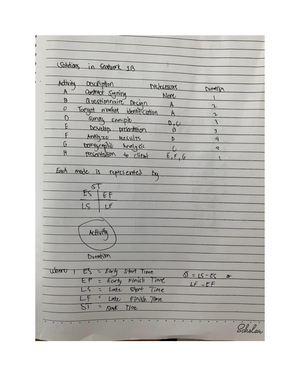 Solutions in Seatwork 1B
Activity Description Predecessors Duration
A Contract Signing None
B Questionnaire Design A 2
C Target market identification A 2
D Survey sample B, C
E Develop presentation D 3
F Analyze results D 4
G Demographic Analysis C 4
H Presentation to client E, F, G 1
Each node is represented by
ST
ES EF
LS LF
Activity
Duration
where ; ES = Early Start Time S = LS - ES or
EF = Early Finish Time LF - EF
LS = Late Start Time
LF = Late Finish Time
ST = Slack Time
Scholar